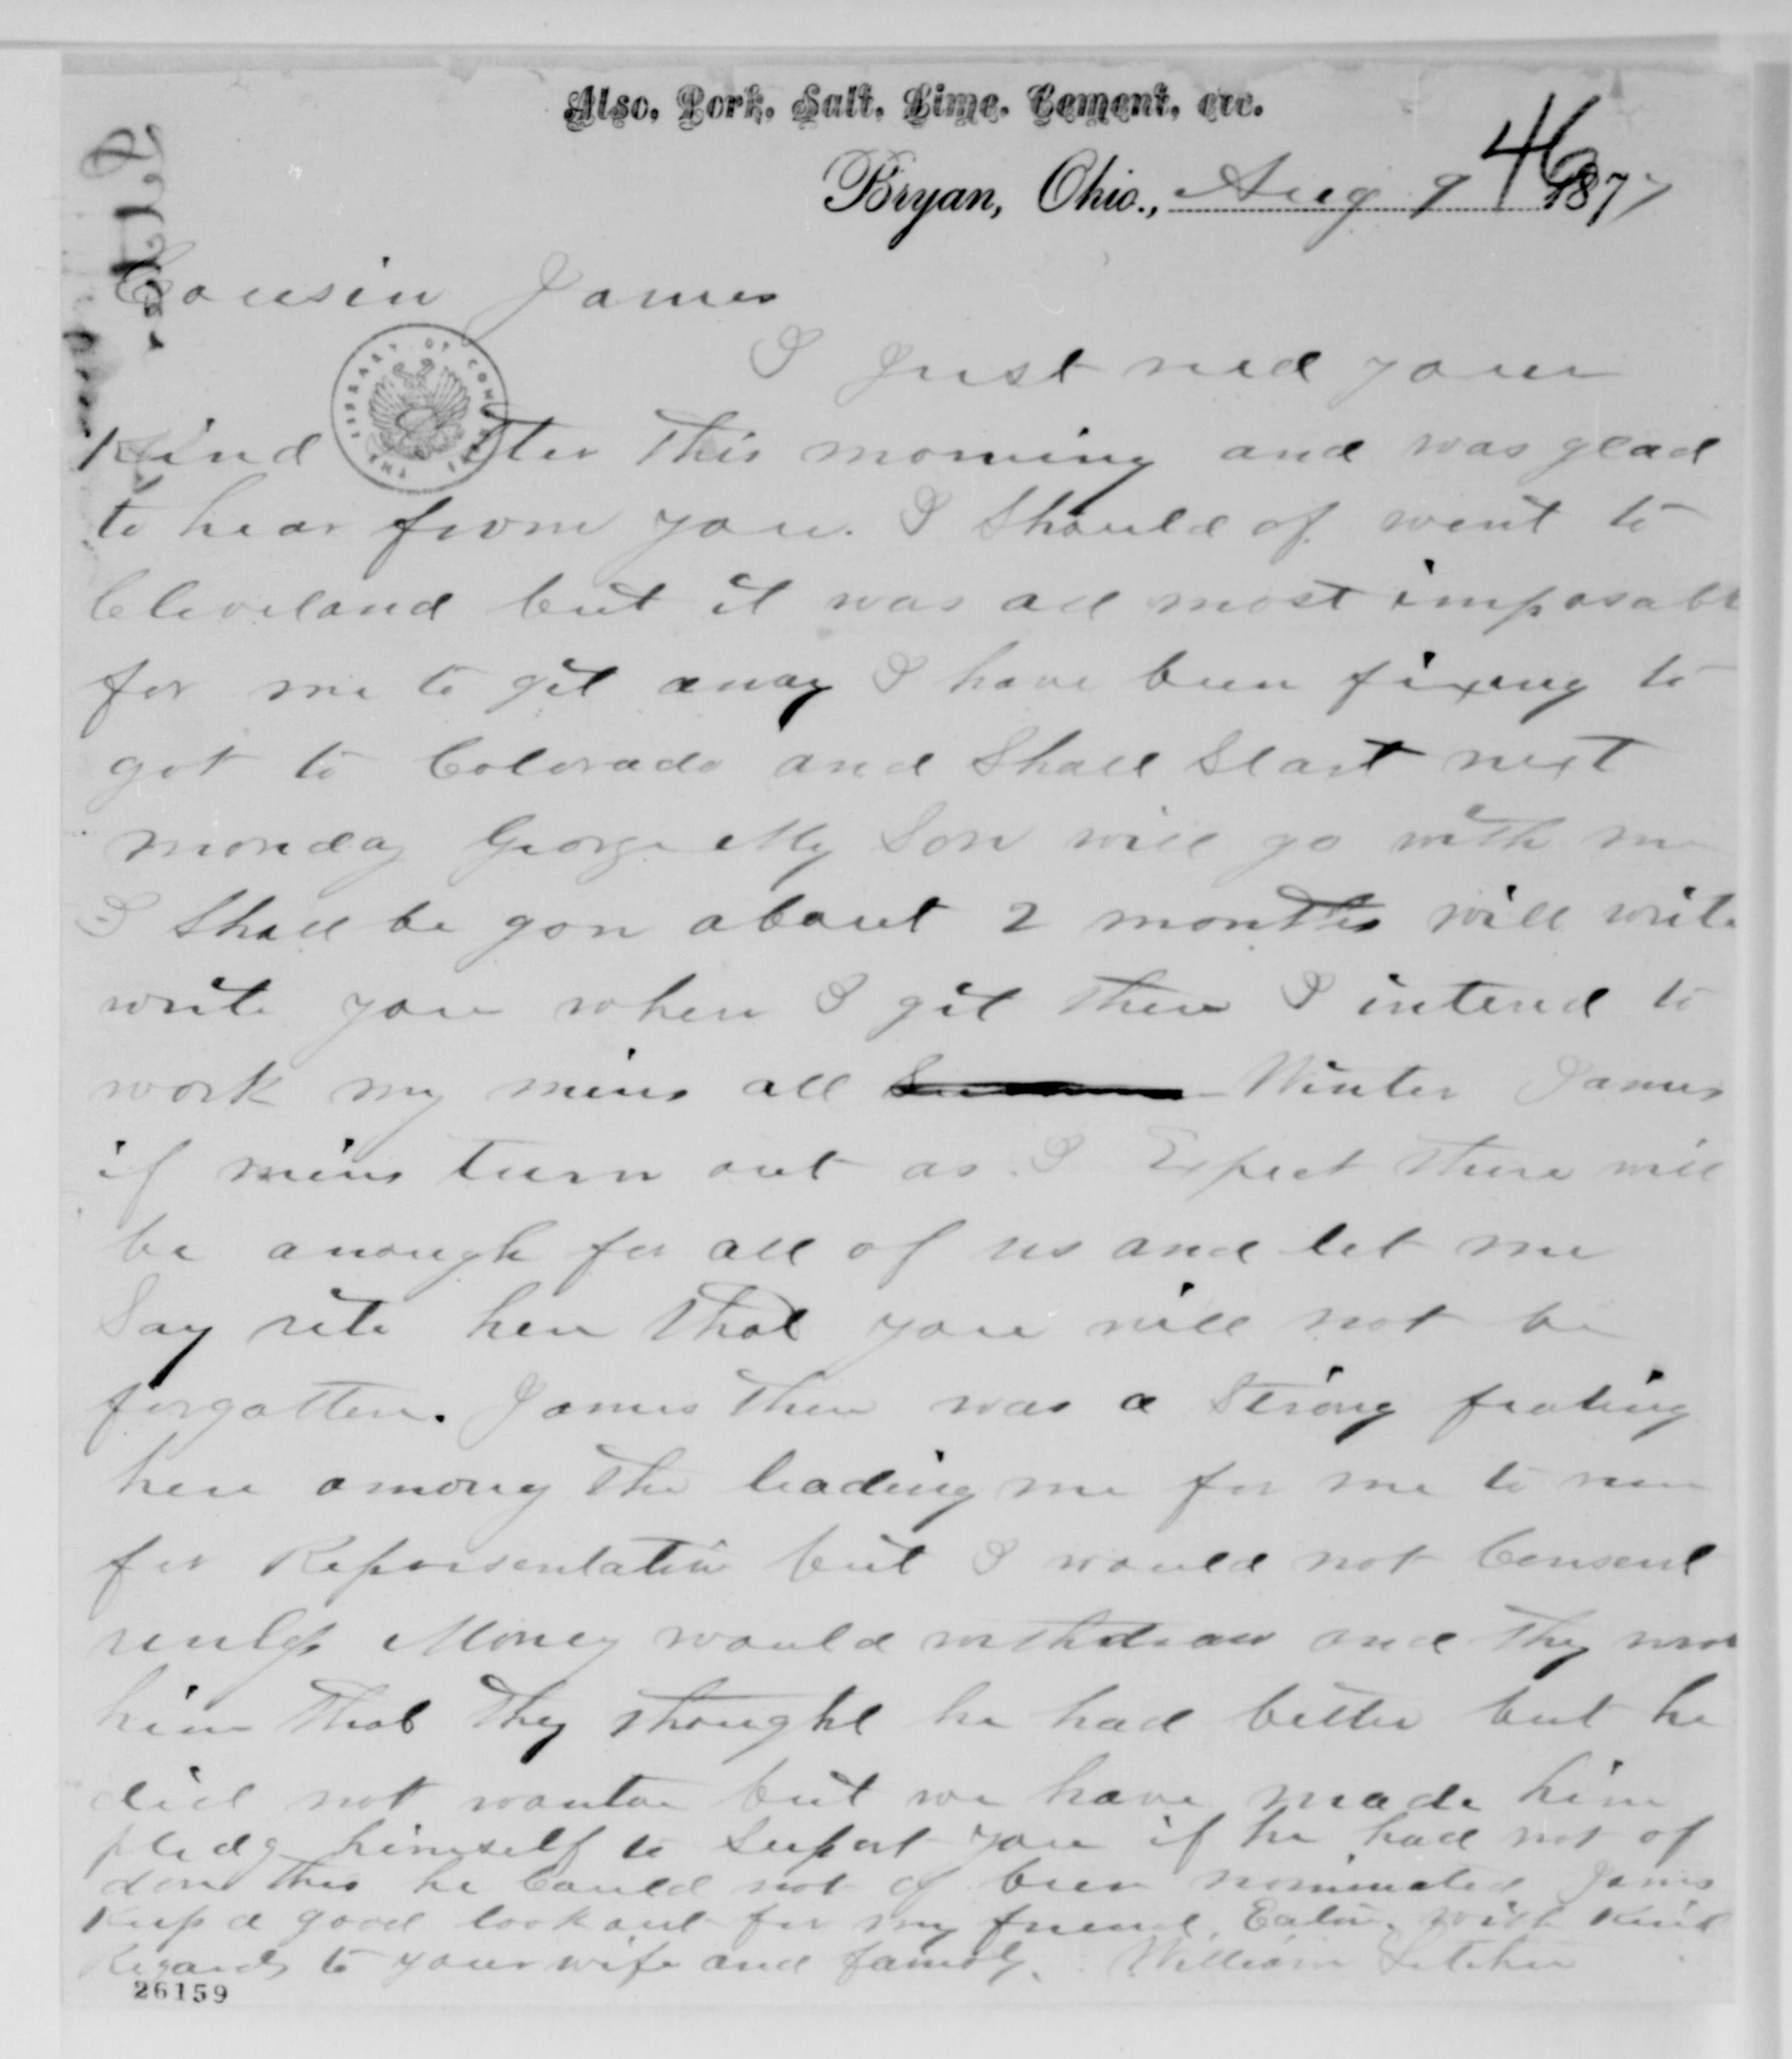 Also, Pork, Salt, Lime, Cement, etc.
46
Bryan, Ohio., Aug 9 1877
Cousin James
I Just recd your
Kind letter this morning and was glad
to hear from you. I Should of went to
Cleveland but it was all most imposable
for me to git away I have been fixeng to
got to Colorado and Shall Start next
monday George My Son will go with me
I Shall be gon about 2 months will write
write you when I git there I intend to
work my mins all Winter James
if mins turn out as I Expect there will
be anough for all of us and let me
Say rite here that you will not be
forgotten. James there was a Strong fealing
here among the leading me for me to run
for Reporsentative but I would not Consent
unless Money would withdraw and they
him that they thought he had better but he
did not wanto but we have made him
pledg himself to Suport you if he had not of
don this he Could not of been nominated James
Keep a good lookout for my friend Eaton, with Kind
Regards to your wife and family. William Letcher
26159
THE LIBRARY OF CONGRESS